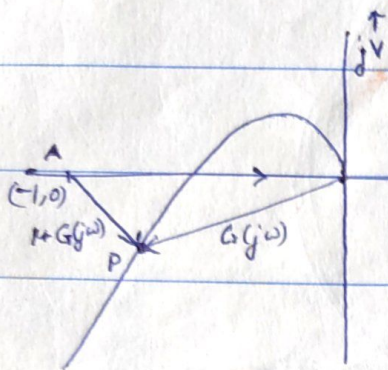 jV
A
(-1,0)
1+G(jω)
P
G(jω)